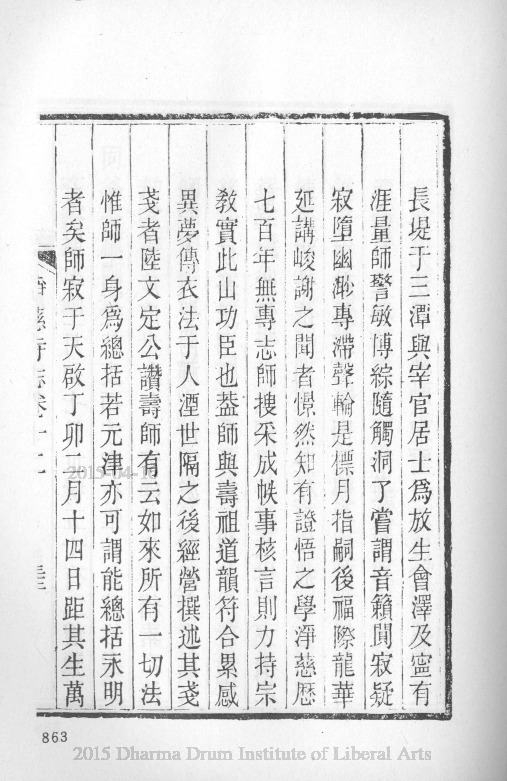 長堤于三潭與宰官居士爲放生會澤及寧有
涯量師警敏博綜隨觸洞了嘗謂音籟聞寂疑
寂墮幽渺專滯聲輪是標月指嗣後福際龍華
延講峻謝之聞者憬然知有證悟之學淨慈歷
七百年無專志師搜采成帙事核言則力持宗
敎實此山功臣也葢師與壽祖道韻符合累感
異夢傳衣法于人湮世隔之後經營撰述其戔
戔者陸文定公讚壽師有云如來所有一切法
惟師一身爲總括若元津亦可謂能總括永明
者矣師寂于天啟丁卯二月十四日距其生萬
慈寺志卷十二
863
2015 Dharma Drum Institute of Liberal Arts